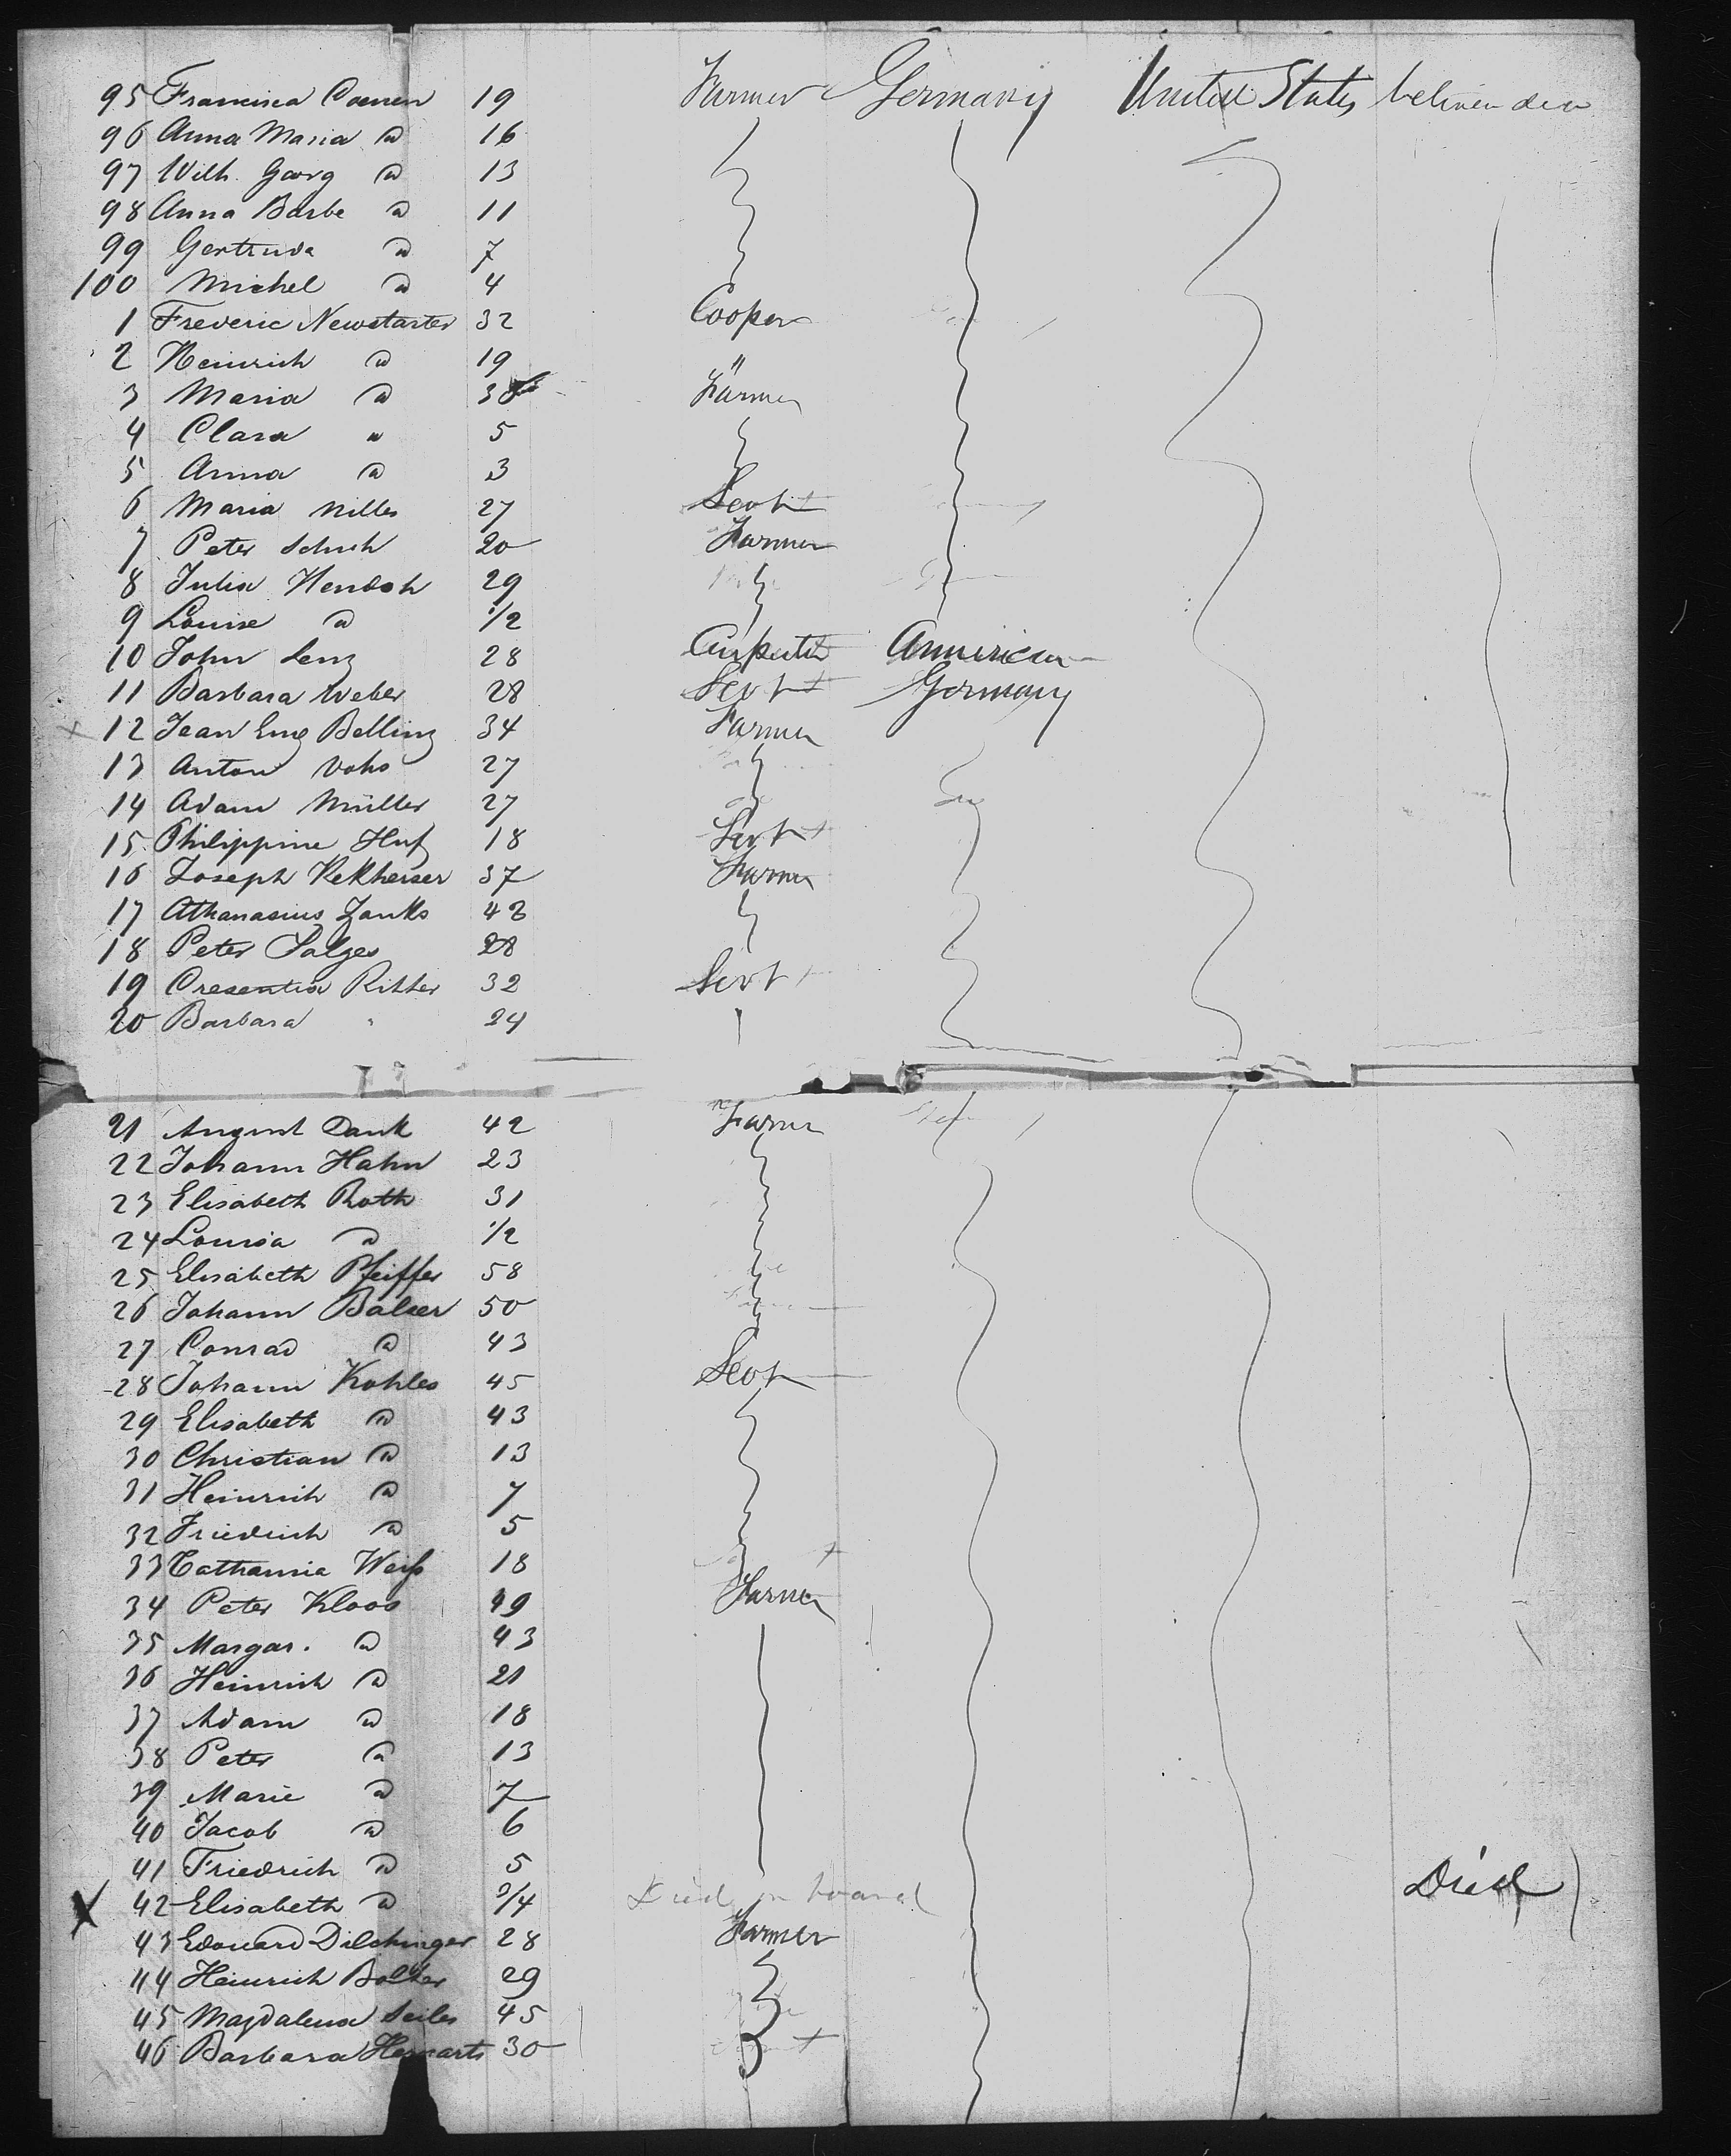 95 Francisca Coenen 19 Farmer Germany United States between deck
96 Anna Maria do 16
97 Wilh. Georg do 13
98 Anna Barbe do 11
99 Gertruda do 7
100 Michel do 4
1 Frederic Newstarter 32 Cooper
2 Heinrich do 19 "
3 Maria do 38 Farmer
4 Clara " 5
5 Anna do 3
6 Maria Nilles 27 Servt
7 Peter Schuh 20 Farmer
8 Julia 29
9 Louise do 1/2
10 John Lenz 28 Carpenter American
11 Barbara Weber 28 Servt Germany
12 Jean Eug Belling 34 Farmer
13 Anton Vohs 27
14 Adam Müller 27
15 Philippine Huf 18 Servt
16 Joseph Kekheiser 37 Farmer
17 Athanasius Zanks 42
18 Peter Salges 28
19 Cresentia Ritter 32 Servt
20 Barbara " 24
21 August Dank 42 Farmer
22 Johann Hahn 23
23 Elisabeth Roth 31
24 Louisa do 1/2
25 Elisabeth Pfeiffer 58
26 Johann Balser 50
27 Conrad do 43
28 Johann Kohles 45 Servt
29 Elisabeth do 43
30 Christian do 13
31 Heinrich do 7
32 Friedrich do 5
33 Catharina Weiß 18
34 Peter Kloos 49 Farmer
35 Margar. do 43
36 Heinrich do 21
37 Adam do 18
38 Peter do 13
39 Marie do 7
40 Jacob do 6
41 Friedrich do 5
X 42 Elisabeth do 3/4 Died on board Died
43 Edouard Dilchinger 28 Farmer
44 Heinrich 29
45 Magdalena Seiler 45
46 Barbara 30